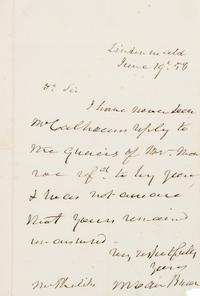 Lindenwald
June 19th 58
Dr Sir
I have never seen
Mr Calhoun's reply to
the queries of Mr. Mon
roe refd to by you,
I was not aware
that yours remained
unansd.
very respectfully
yours
M Van Buren
Mr